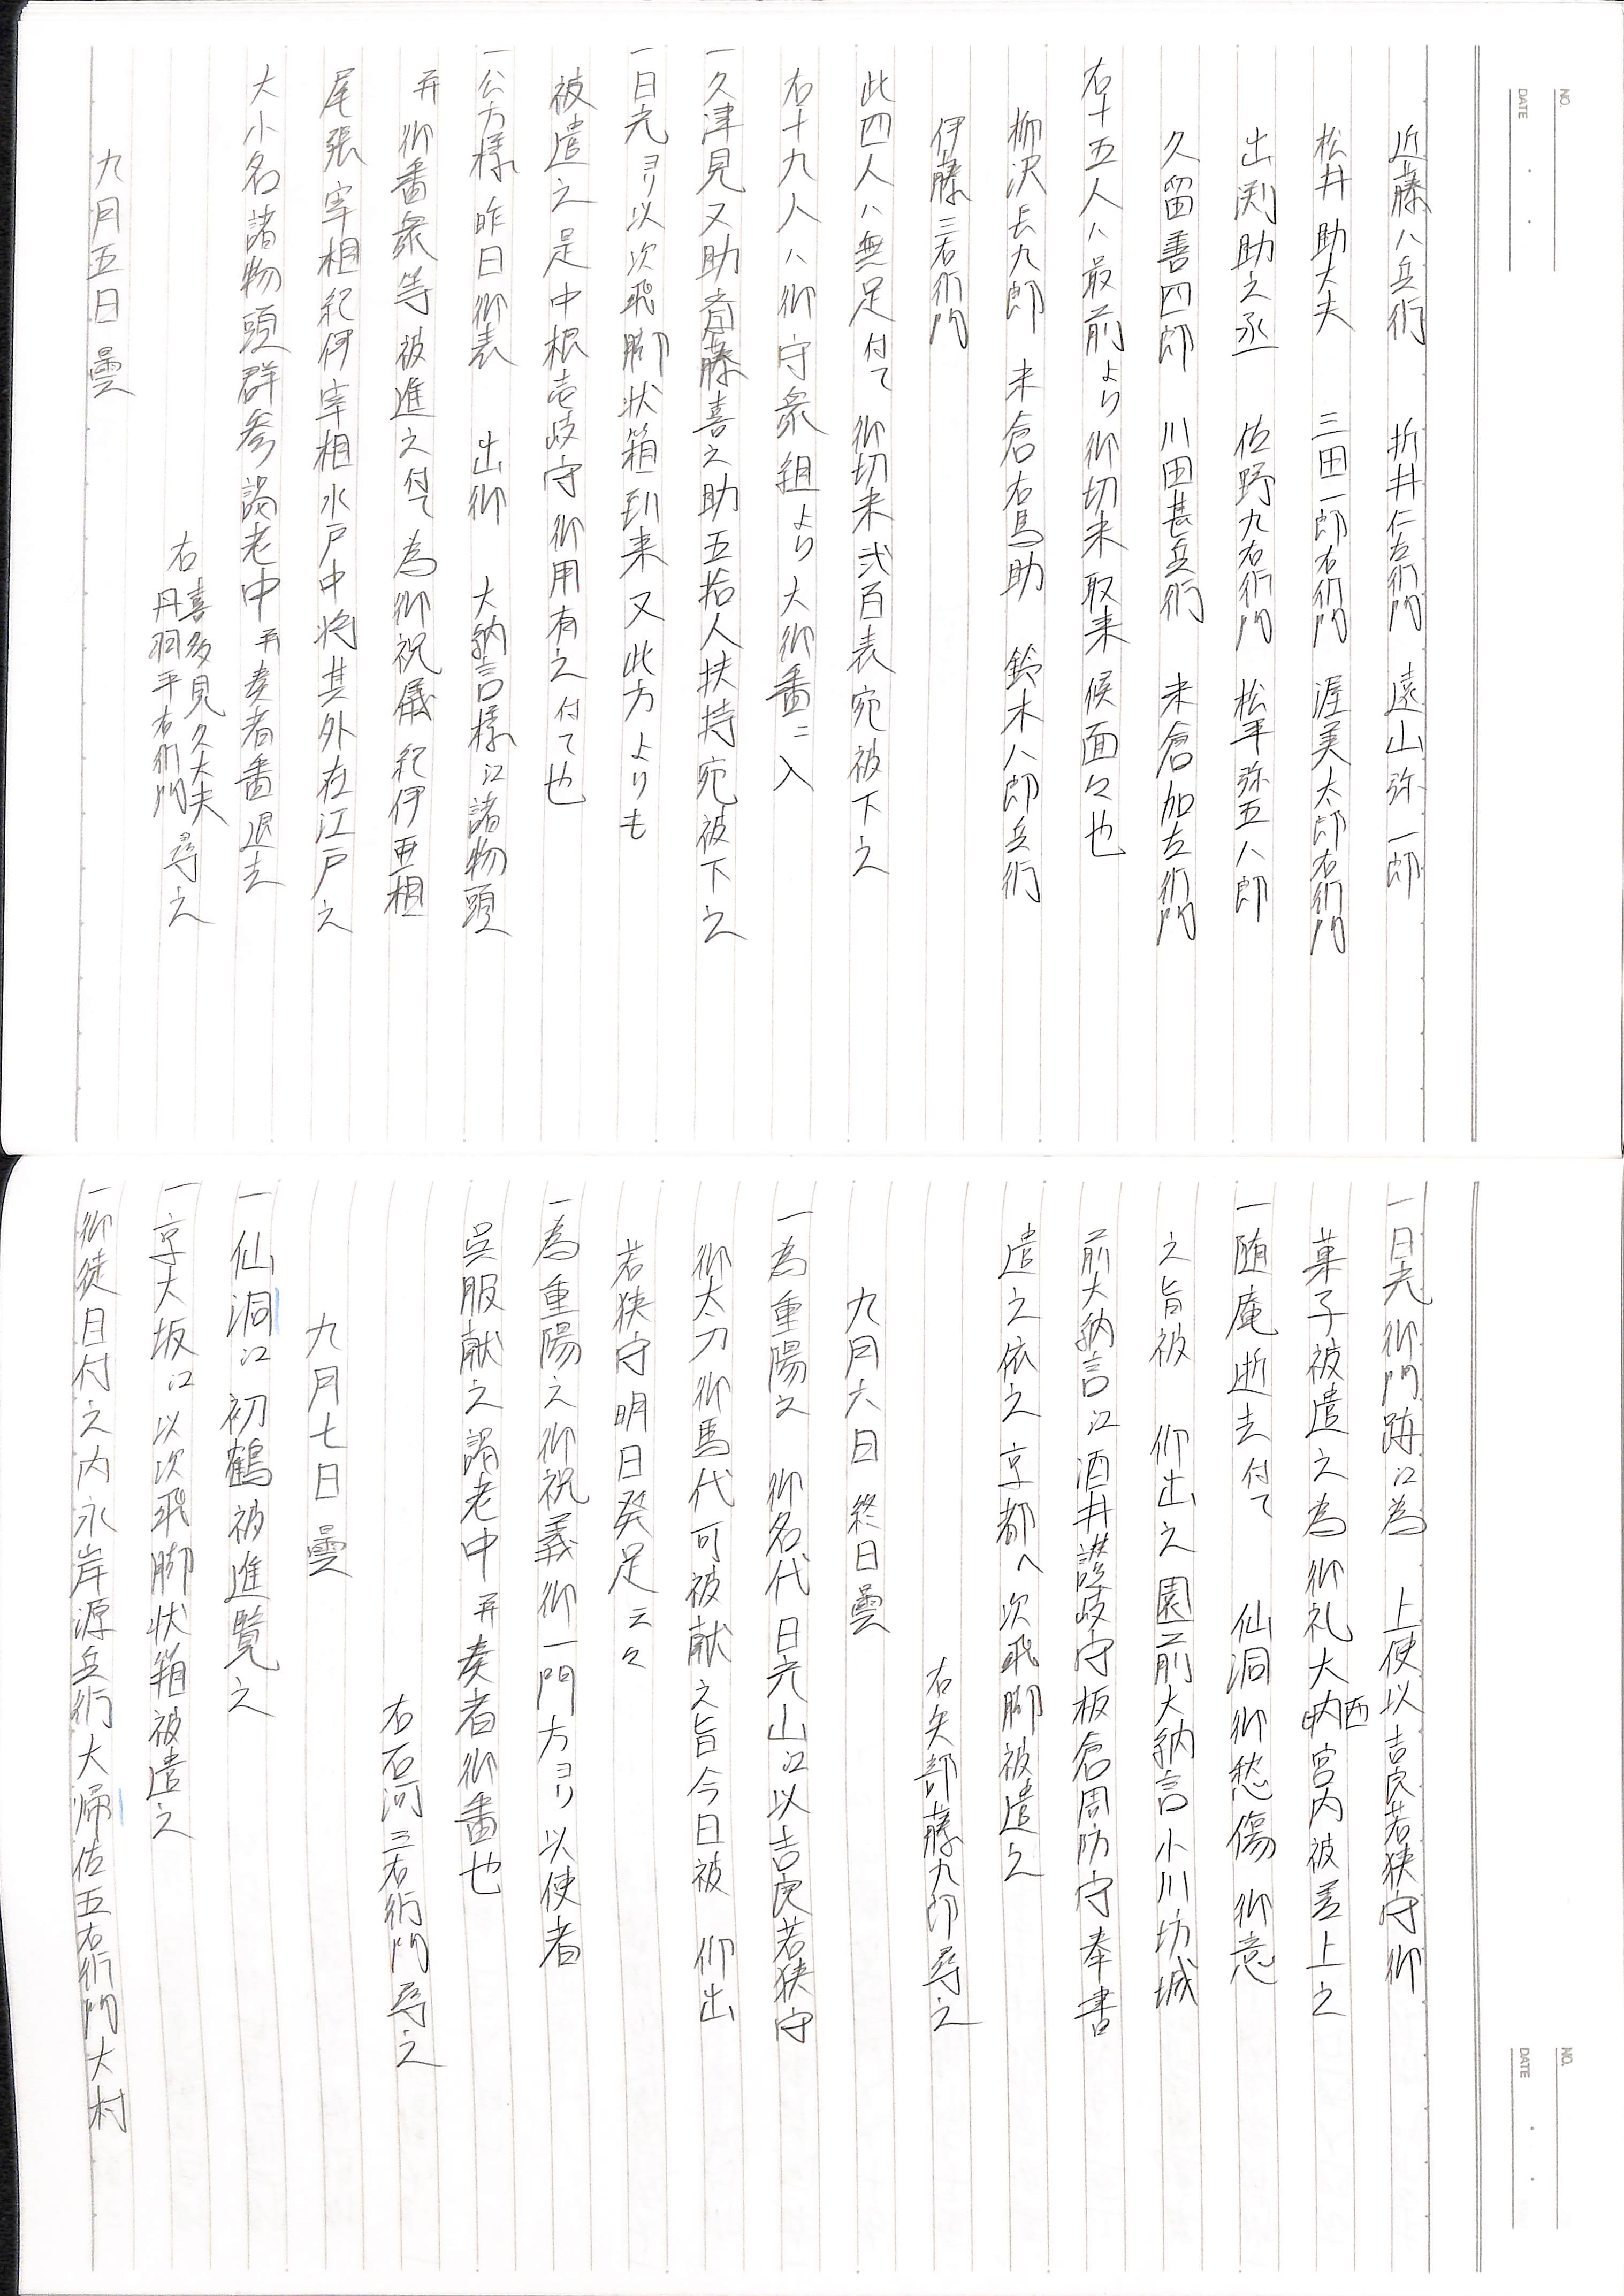 NO.
DATE
近藤八兵衛 折井仁左衛門 遠山弥一郎
松井助大夫 三田一郎右衛門 渥美太郎右衛門
出渕助之丞 佐野九右衛門 松平弥五八郎
久留善四郎 川田甚兵衛 米倉加左衛門
右十五人ハ最前より御切米取来候面々也
柳沢長九郎 米倉右馬助 鈴木八郎兵衛
伊藤三右衛門
此四人ハ無足付て御切米弐百表宛被下之
右十九人ハ御守衆組より大御番ニ入
一久津見又助斎藤喜之助五拾人扶持宛被下之
一日光ヨリ以次飛脚状箱到来又此方よりも
被遣之是中根壱岐守御用有之付て也
一公方様昨日御表 出御 大納言様江諸物頭
并御番衆等被進之付て為御祝儀紀伊亜相
尾張宰相紀伊宰相水戸中将其外在江戸之
大小名諸物頭群参謁老中并奏者番退去
右喜多見久大夫丹羽平右衛門尋之
九月五日 曇
NO.
DATE
一日光御門跡江為 上使以吉良若狭守御
菓子被遣之為御礼大納西宮内被差上之
一随庵逝去付て 仙洞御愁傷 御意
之旨被 仰出之園前大納言小川坊城
前大納言江酒井讃岐守板倉周防守奉書
遣之依之京都へ次飛脚被遣之
右矢部藤九郎尋之
九月六日 終日曇
一為重陽之 御名代日光山江以吉良若狭守
御太刀御馬代可被献之旨今日被 仰出
若狭守明日発足云々
一為重陽之御祝義御一門方ヨリ以使者
呉服献之謁老中并奏者御番也
右石河三右衛門尋之
九月七日 曇
一仙洞江初鶴被進覧之
一京大坂江以次飛脚状箱被遣之
一御徒目付之内永岸源兵衛大帰佐五右衛門大村